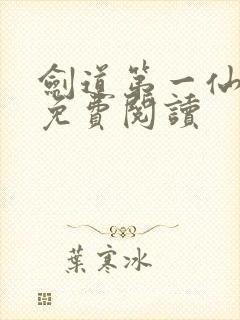 劍道第一仙
免費閱讀
葉寒冰